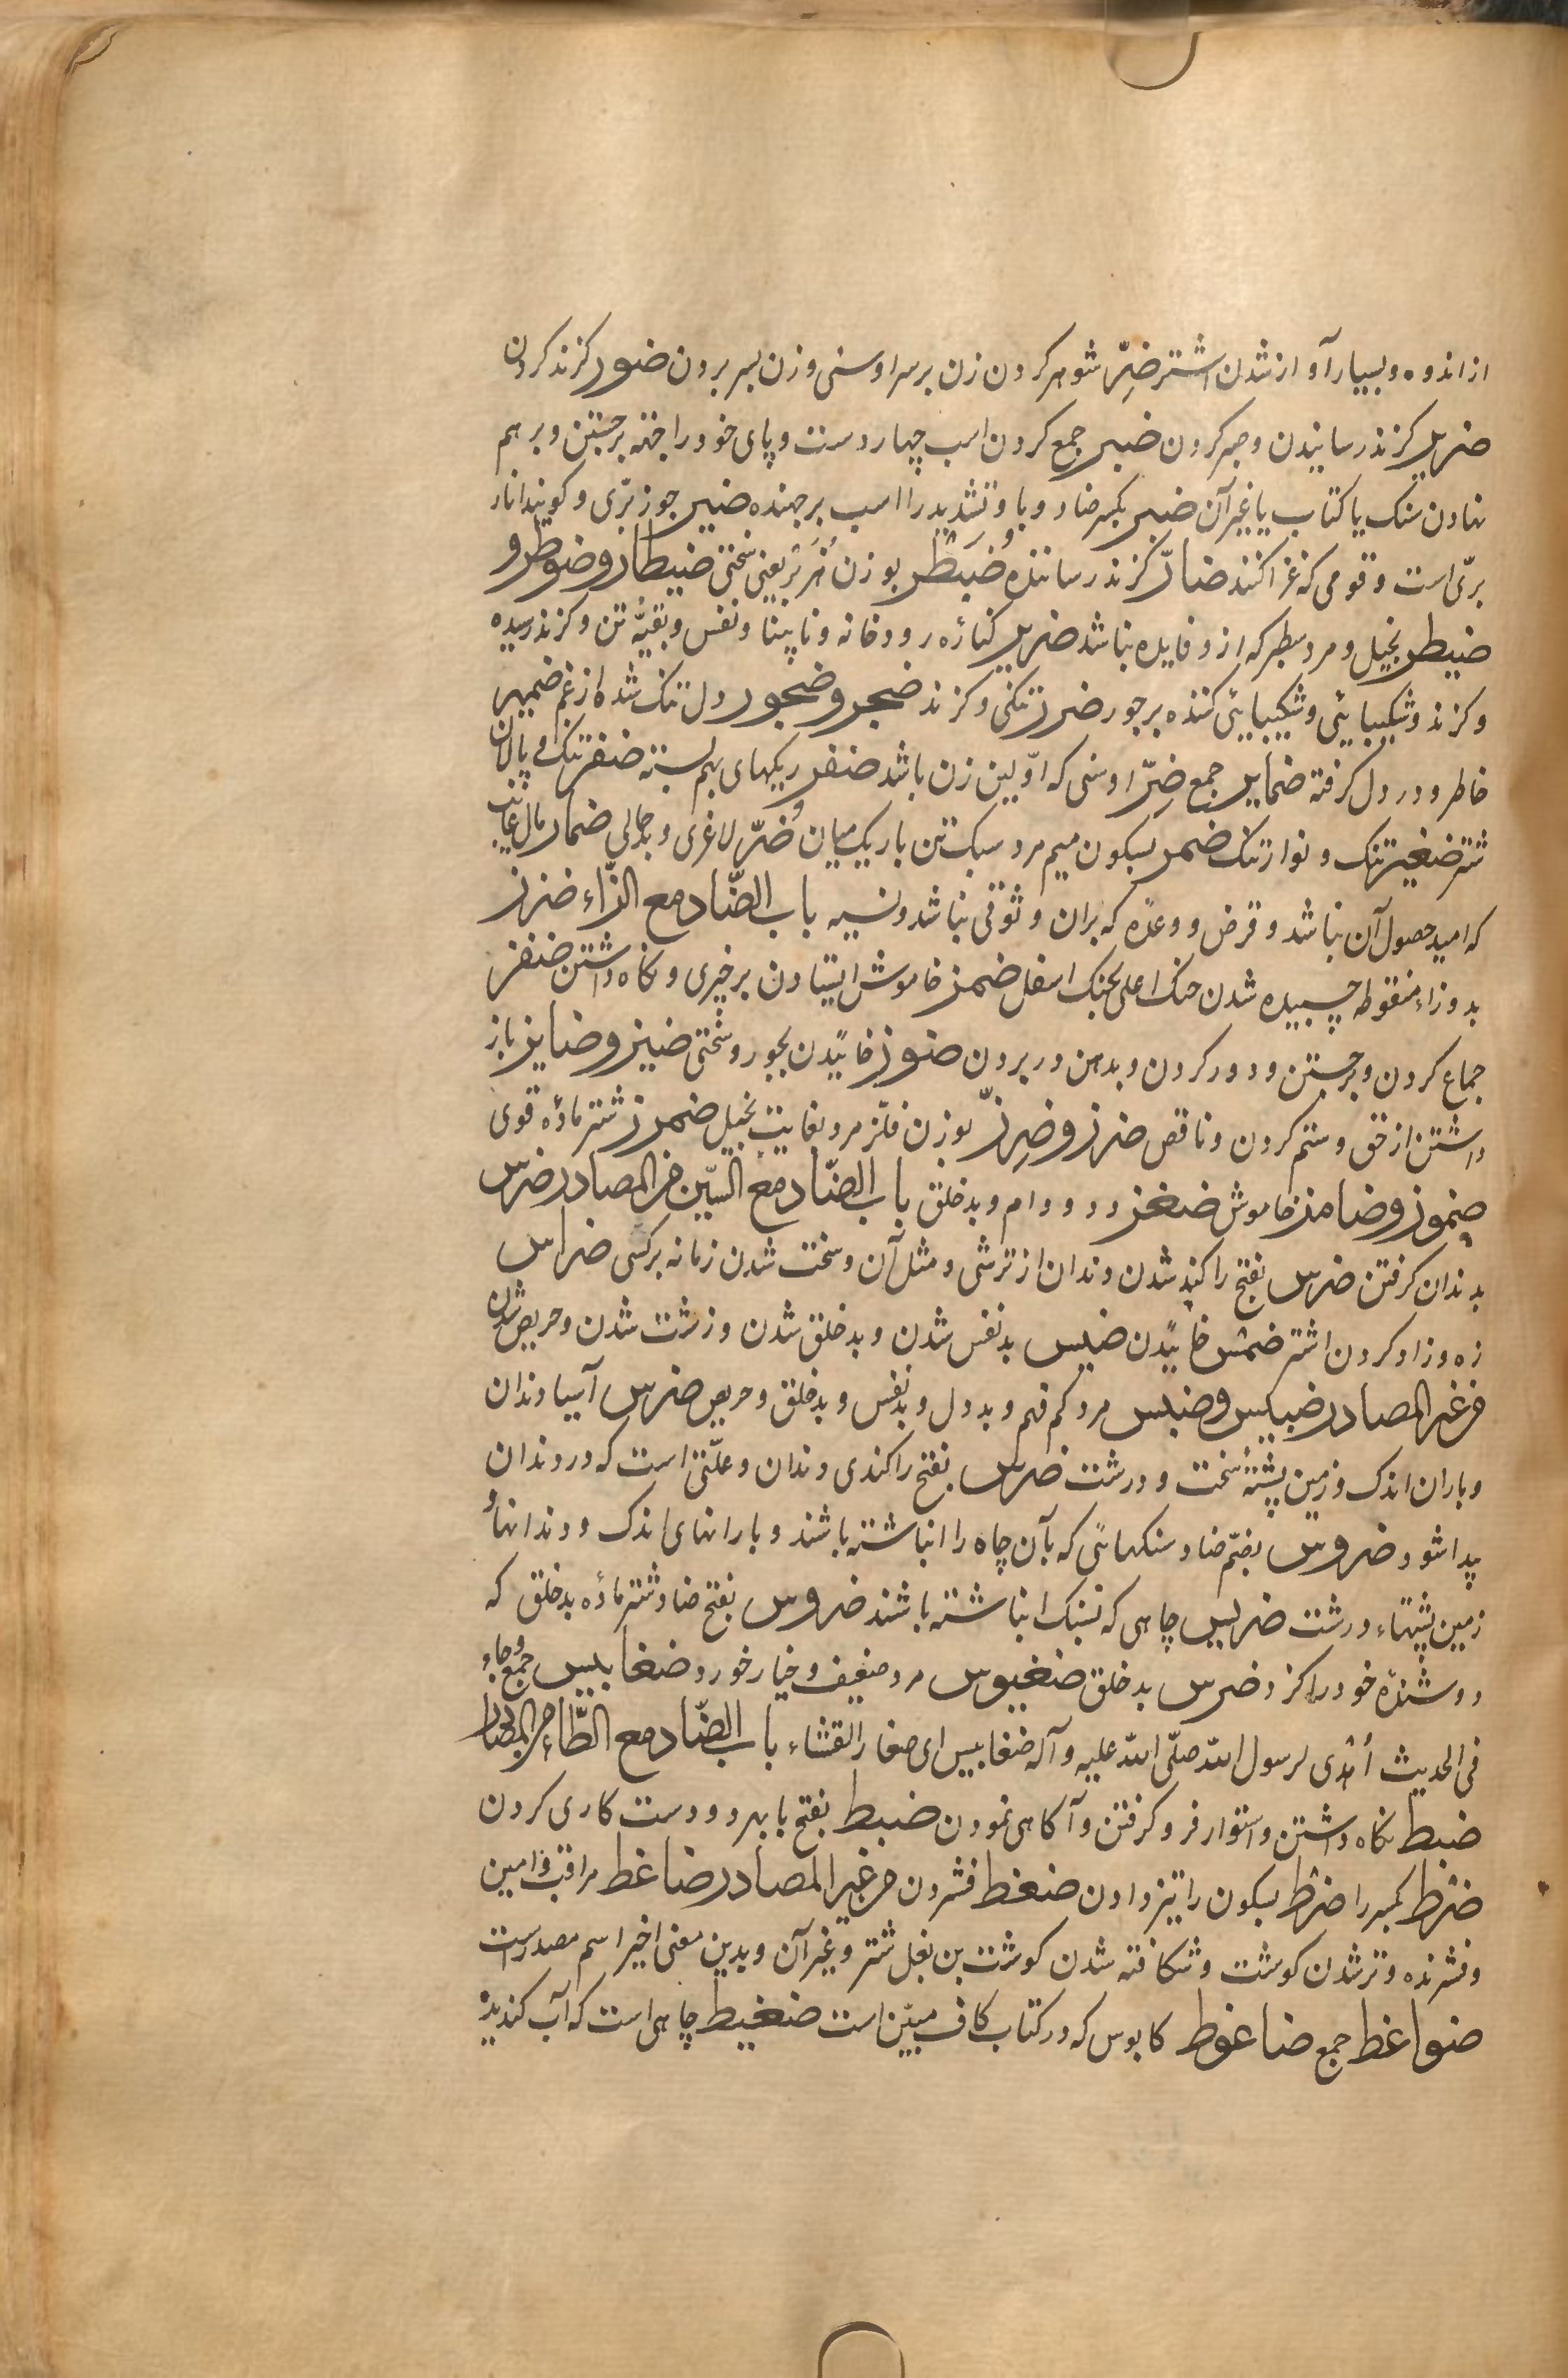 از اندوه و بسیار آواز شدن اشتر ضِرّ شوهر کردن زن بر سر اوسنی و زن بسر بردن ضور کزند کردن
ضریر کزند رسانیدن و صبر کردن ضبر جمع کردن اسب چهار دست و پای خود را جهة برجستن و برهم
نهادن سنک یا کتاب یا غیر آن ضبر بکسر ضاد و با و تشدید را اسب برجهنده ضبر جوز برّی و کویند انار
برّی است و قومی که غزا کنند ضارّ کزند رساننده ضبطر بوزن هزبر یعنی سختی ضیطار و ضوطر و
ضیطر بخیل و مرد سطبر که ازو فایده نباشد ضریر کنارۀ رودخانه و نابینا و نفس و بقیّۀ تن و کزند رسیده
و کزند و شکیبایی و شکیبایی کننده بر جور ضرر تنکی و کزند ضجر و ضجور دل تنک شده از غم ضمیر
خاطر و در دل کرفته ضمایر جمع ضرّ اوسنی که اوّلین زن باشد ضفر ریکهای بهم بسته ضفر تنک پالان
شتر ضغیر تنک و نوار تنک ضمر بسکون میم مرد سبک تن باریک میان و ضرّ لاغری و بدحالی ضمار مال غایب
که امید حصول آن نباشد و قرض و وعدۀ که بران وثوقی نباشد و نسیه باب الضّاد مع الزّاء ضزز
بدو زاء منقوطه چسبیده شدن حنک اعلی بحنک اسفل ضمز خاموش ایستادن بر خیری و نکاه داشتن ضفز
جماع کردن و برجستن و دور کردن و بدهن در بردن ضوز خائیدن بجور و سختی ضیز و ضایز باز
داشتن از حق و ستم کردن و ناقص ضرز و ضرزّ بوزن فلزّ مرد بغایت بخیل ضمرز شتر مادۀ قوی
ضموز و ضامز خاموش ضغز دد و دام و بدخلق باب الضّاد مع السّین من المصادر ضرس
بدندان کرفتن ضرس بفتح را کند شدن دندان از ترشی و مثل آن و سخت شدن زمانه بر کسی ضراس
زه و زاد کردن اشتر ضمس خائیدن ضبس بد نفس شدن و بدخلق شدن و زشت شدن و حریص شدن
من غیر المصادر ضبیس و ضبس مرد کم فهم و بددل و بد نفس و بدخلق و حریص ضرس آسیا دندان
و باران اندک و زمین پشتۀ سخت و درشت ضرس بفتح را کندی دندان و علّتی است که در دندان
پیدا شود ضروس بضمّ ضاد سنکهائی که بآن چاه را انباشته باشند و بارانهای اندک و دندانها و
زمین پشتهاء درشت ضریس چاهی که بسنک انباشته باشند ضروس بفتح ضاد شتر مادۀ بدخلق که
دوشندۀ خود را کزد ضرس بدخلق ضغبوس مرد ضعیف و خیار خورد ضغابیس جمع و جاء
فی الحدیث أهدی لرسول الله صلّی الله علیه و آله ضغابیس ای صغار القثاء باب الضّاد مع الطّاء من المصادر
ضبط نکاه داشتن و استوار فرو کرفتن و آکاهی نمودن ضبط بفتح با بهر دو دست کاری کردن
ضرط بکسر را ضرط بسکون را تیز دادن ضغط فشردن من غیر المصادر ضاغط مراقب و امین
و فشرنده و تر شدن کوشت و شکافته شدن کوشت بن بغل شتر و غیر آن و بدین معنی اخیر اسم مصدر است
ضواغط جمع ضاغوط کابوس که در کتاب کاف مبیّن است ضغیط چاهی است که آب کندیده